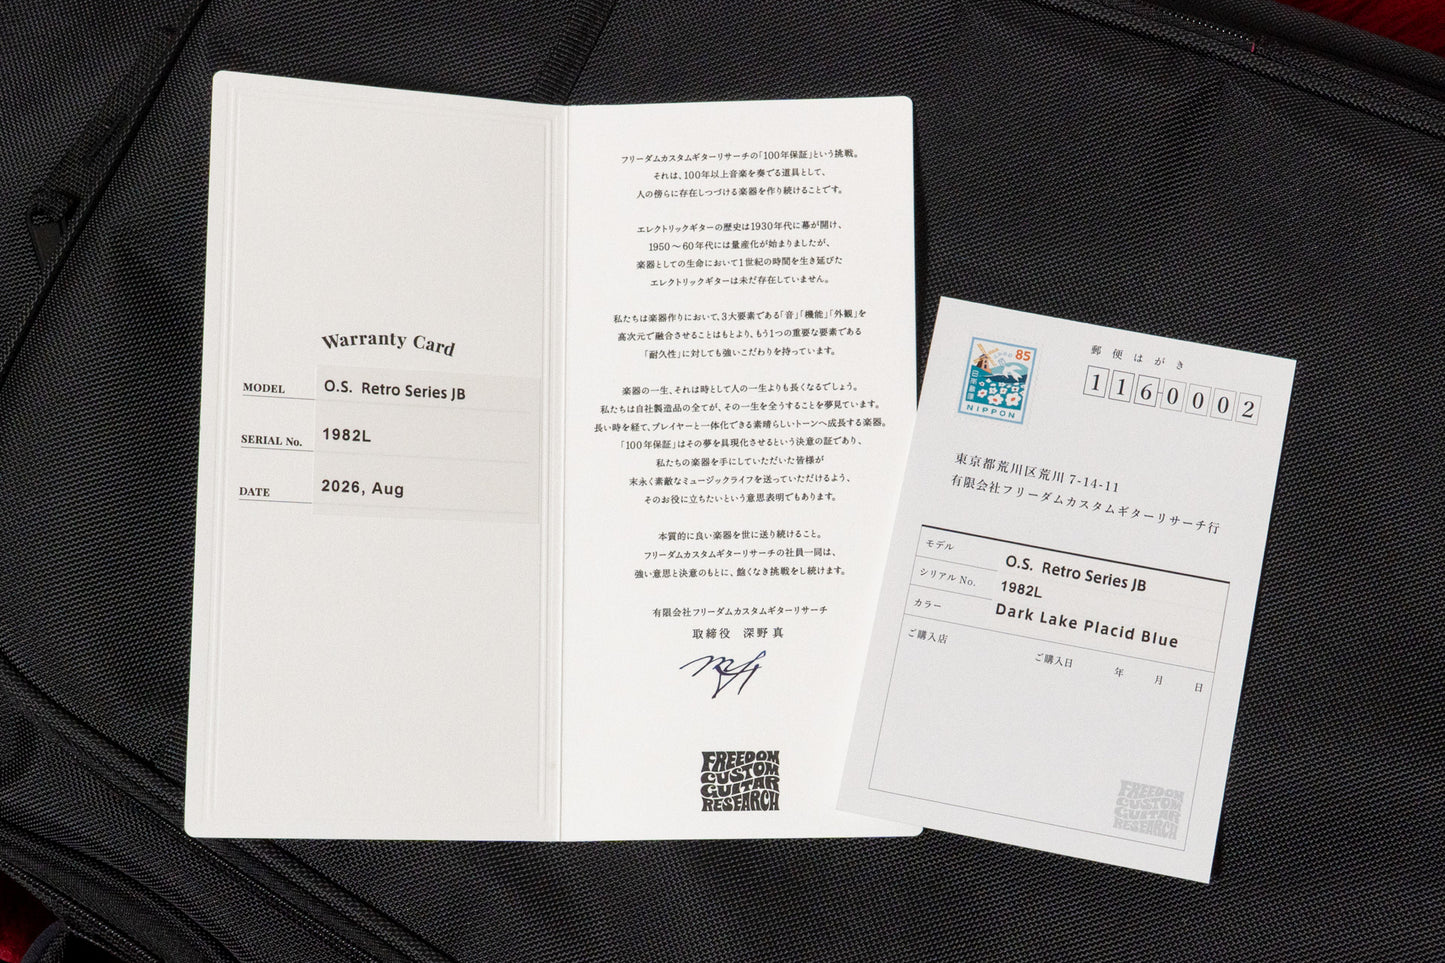 Warranty Card
MODEL O.S. Retro Series JB
SERIAL No. 1982L
DATE 2026, Aug
フリーダムカスタムギターリサーチの「100年保証」という挑戦。
それは、100年以上音楽を奏でる道具として、
人の傍らに存在しつづける楽器を作り続けることです。
エレクトリックギターの歴史は1930年代に幕が開け、
1950〜60年代には量産化が始まりましたが、
楽器としての生命において1世紀の時間を生き延びた
エレクトリックギターは未だ存在していません。
私たちは楽器作りにおいて、3大要素である「音」「機能」「外観」を
高次元で融合させることはもとより、もう1つの重要な要素である
「耐久性」に対しても強いこだわりを持っています。
楽器の一生、それは時として人の一生よりも長くなるでしょう。
私たちは自社製造品の全てが、その一生を全うすることを夢見ています。
長い時を経て、プレイヤーと一体化できる素晴らしいトーンへ成長する楽器。
「100年保証」はその夢を具現化させるという決意の証であり、
私たちの楽器を手にしていただいた皆様が
末永く素敵なミュージックライフを送っていただけるよう、
そのお役に立ちたいという意思表明でもあります。
本質的に良い楽器を世に送り続けること。
フリーダムカスタムギターリサーチの社員一同は、
強い意思と決意のもとに、飽くなき挑戦をし続けます。
有限会社フリーダムカスタムギターリサーチ
取締役 深野 真
FREEDOM
CUSTOM
GUITAR
RESEARCH
85
日本郵便
NIPPON
郵便はがき
1160002
東京都荒川区荒川 7-14-11
有限会社フリーダムカスタムギターリサーチ行
モデル O.S. Retro Series JB
シリアル No. 1982L
カラー Dark Lake Placid Blue
ご購入店
ご購入日 年 月 日
FREEDOM
CUSTOM
GUITAR
RESEARCH